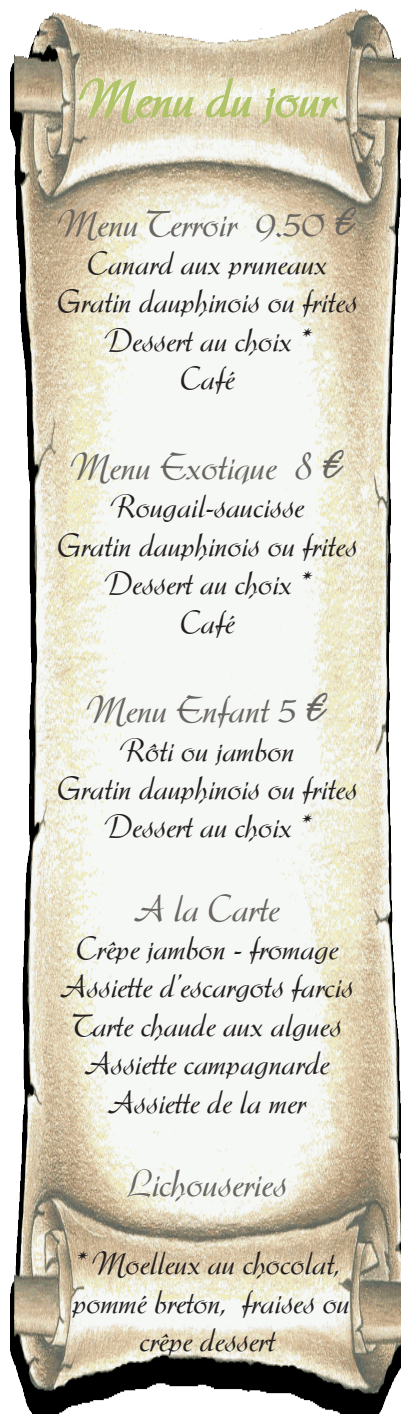 Menu du jour
Menu Terroir 9.50 €
Canard aux pruneaux
Gratin dauphinois ou frites
Dessert au choix *
Café
Menu Exotique 8 €
Rougail-saucisse
Gratin dauphinois ou frites
Dessert au choix *
Café
Menu Enfant 5 €
Rôti ou jambon
Gratin dauphinois ou frites
Dessert au choix *
A la Carte
Crêpe jambon - fromage
Assiette d'escargots farcis
Tarte chaude aux algues
Assiette campagnarde
Assiette de la mer
Lichouseries
* Moelleux au chocolat,
pommé breton, fraises ou
crêpe dessert